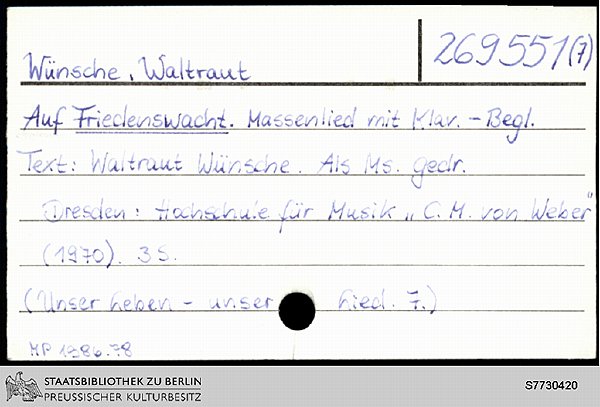 269551(7)
Wünsche, Waltraut
Auf Friedenswacht. Massenlied mit Klav.-Begl.
Text: Waltraut Wünsche. Als Ms. gedr.
Dresden: Hochschule für Musik „C. M. von Weber"
(1970). 3 S.
(Unser Leben - unser Lied. 7.)
MP 1986.78
STAATSBIBLIOTHEK ZU BERLIN
PREUSSISCHER KULTURBESITZ
S7730420